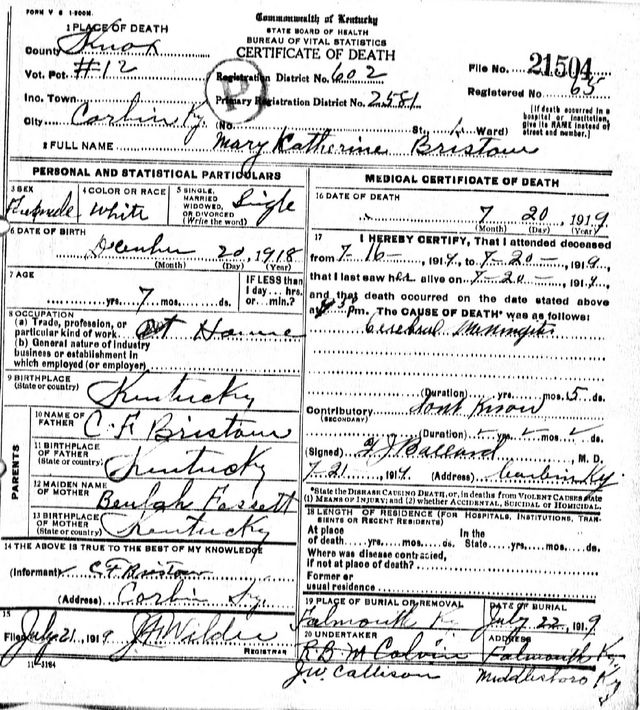 FORM V S 1-200M.
Commonwealth of Kentucky
STATE BOARD OF HEALTH
BUREAU OF VITAL STATISTICS
CERTIFICATE OF DEATH
1 PLACE OF DEATH
County Knox
Vot. Pct. #12
Inc. Town
City Corbin Ky.
Registration District No. 602
Primary Registration District No. 2581
P
(No. St., Ward)
File No. 21504
Registered No. 65
[If death occurred in a hospital or institution, give its NAME instead of street and number.]
2 FULL NAME Mary Katherine Bristow
PERSONAL AND STATISTICAL PARTICULARS
3 SEX
4 COLOR OR RACE White
5 SINGLE, MARRIED WIDOWED, OR DIVORCED (Write the word) Single
6 DATE OF BIRTH
December 20, 1918
(Month) (Day) (Year)
7 AGE
yrs. 7 mos. ds.
IF LESS than 1 day... hrs. or... min.?
8 OCCUPATION
(a) Trade, profession, or particular kind of work At Home
(b) General nature of industry business or establishment in which employed (or employer)
9 BIRTHPLACE (State or country) Kentucky
PARENTS
10 NAME OF FATHER C. F. Bristow
11 BIRTHPLACE OF FATHER (State or country) Kentucky
12 MAIDEN NAME OF MOTHER Beulah Fossett
13 BIRTHPLACE OF MOTHER (State or country) Kentucky
14 THE ABOVE IS TRUE TO THE BEST OF MY KNOWLEDGE
(Informant) C F Bristow
(Address) Corbin Ky.
15
Filed July 21, 1919 Wilder
REGISTRAR
11-3184
MEDICAL CERTIFICATE OF DEATH
16 DATE OF DEATH
7 20, 1919
(Month) (Day) (Year)
17 I HEREBY CERTIFY, That I attended deceased
from 7-16-, 1919, to 7-20-, 1919,
that I last saw her alive on 7-20-, 1919,
and that death occurred on the date stated above
at m. The CAUSE OF DEATH* was as follows:
Cerebral Meningitis
(Duration) yrs. mos. 5 ds.
Contributory Dont Know
(SECONDARY)
(Duration) yrs. mos. ds.
(Signed) Ballard, M. D.
7-21, 1919 (Address) Corbin Ky.
*State the DISEASE CAUSING DEATH, or, in deaths from VIOLENT CAUSES state (1) MEANS OF INJURY; and (2) whether ACCIDENTAL, SUICIDAL or HOMICIDAL.
18 LENGTH OF RESIDENCE (FOR HOSPITALS, INSTITUTIONS, TRANSIENTS OR RECENT RESIDENTS)
At place of death yrs. mos. ds. In the State yrs. mos. ds.
Where was disease contracted, if not at place of death?
Former or usual residence
19 PLACE OF BURIAL OR REMOVAL Falmouth Ky
DATE OF BURIAL July 22, 1919
20 UNDERTAKER R B McColvin
J. W. Callison
ADDRESS Falmouth Ky
Middlesboro Ky